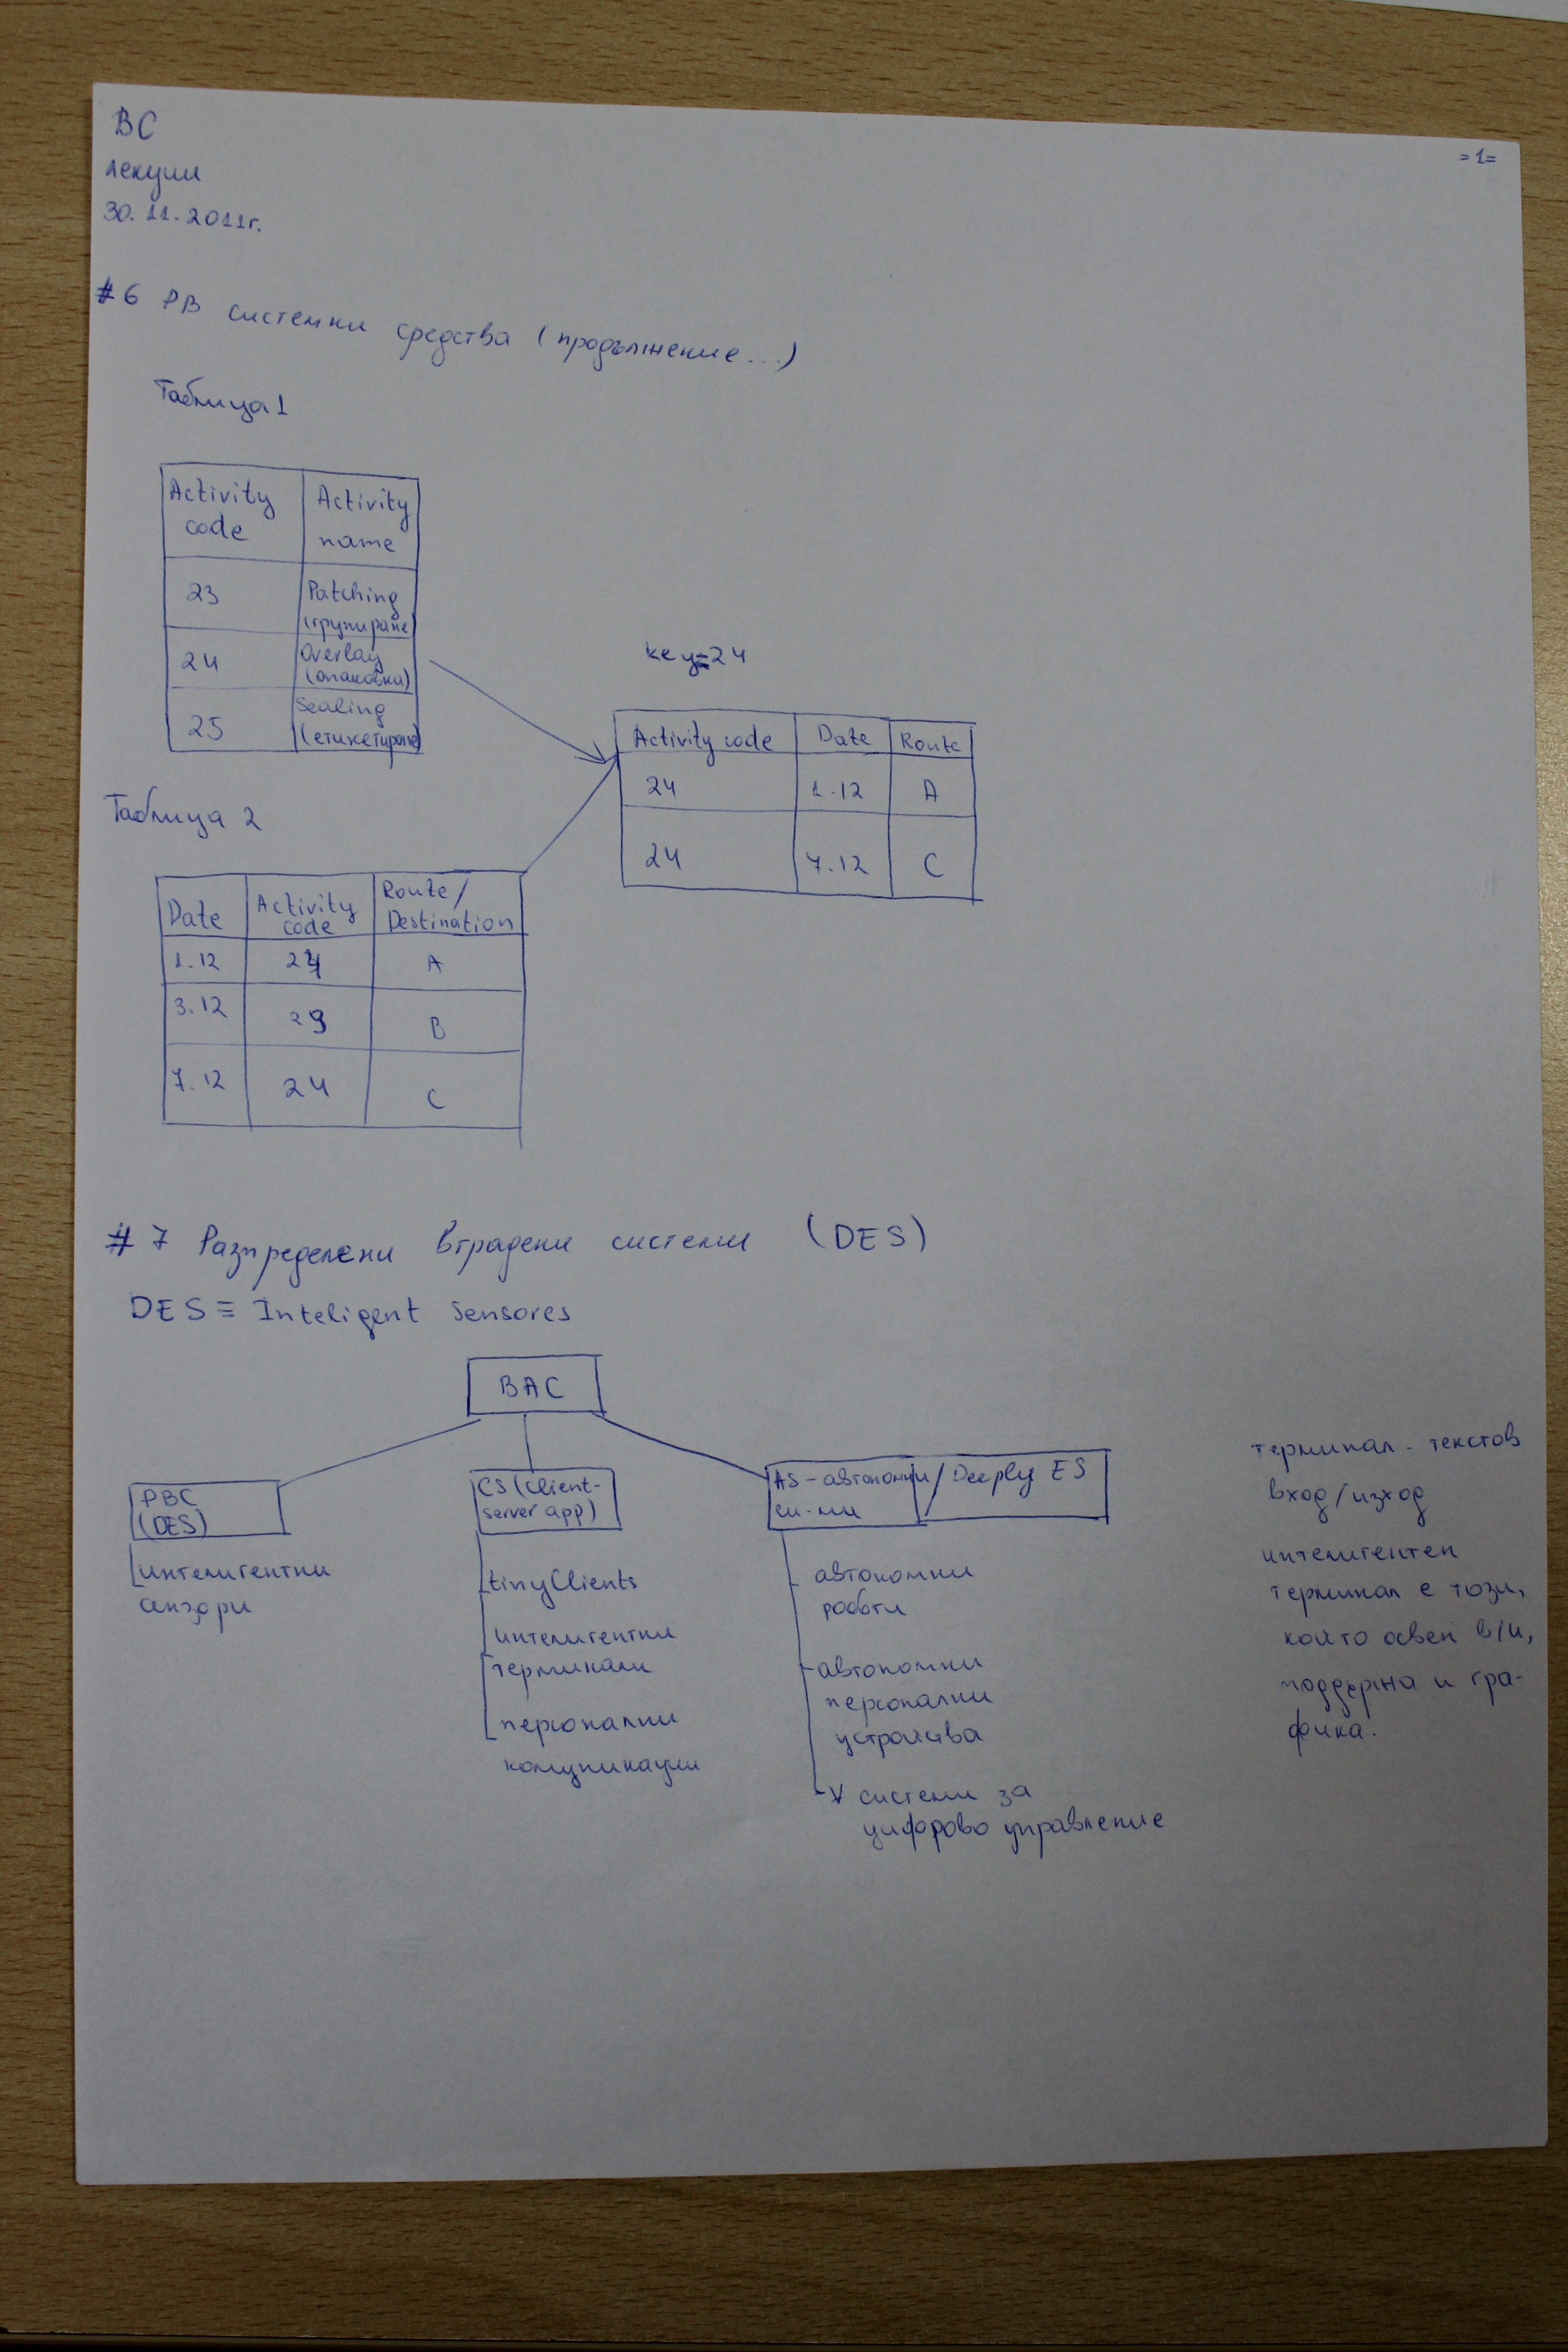 ВС
=1=
лекции
30.11.2011г.
#6 РВ системни средства (продължение...)
Таблица 1
Activity code | Activity name
23 | Patching (групиране)
24 | Overlay (опаковки)
25 | Sealing (етикетиране)
key=24
Activity code | Date | Route
24 | 1.12 | A
24 | 7.12 | C
Таблица 2
Date | Activity code | Route/ Destination
1.12 | 24 | A
3.12 | 23 | B
7.12 | 24 | C
#7 Разпределени вградени системи (DES)
DES ≡ Inteligent Sensores
ВАС
РВС
(DES)
интелигентни
сензори
CS (client-
server app)
tinyClients
интелигентни
терминали
персонални
комуникации
AS - автономни / Deeply ES
си-ми
автономни
роботи
автономни
персонални
устройства
системи за
цифрово управление
терминал - текстов
вход/изход
интелигентен
терминал е този,
който освен в/и,
поддържа и гра-
фика.